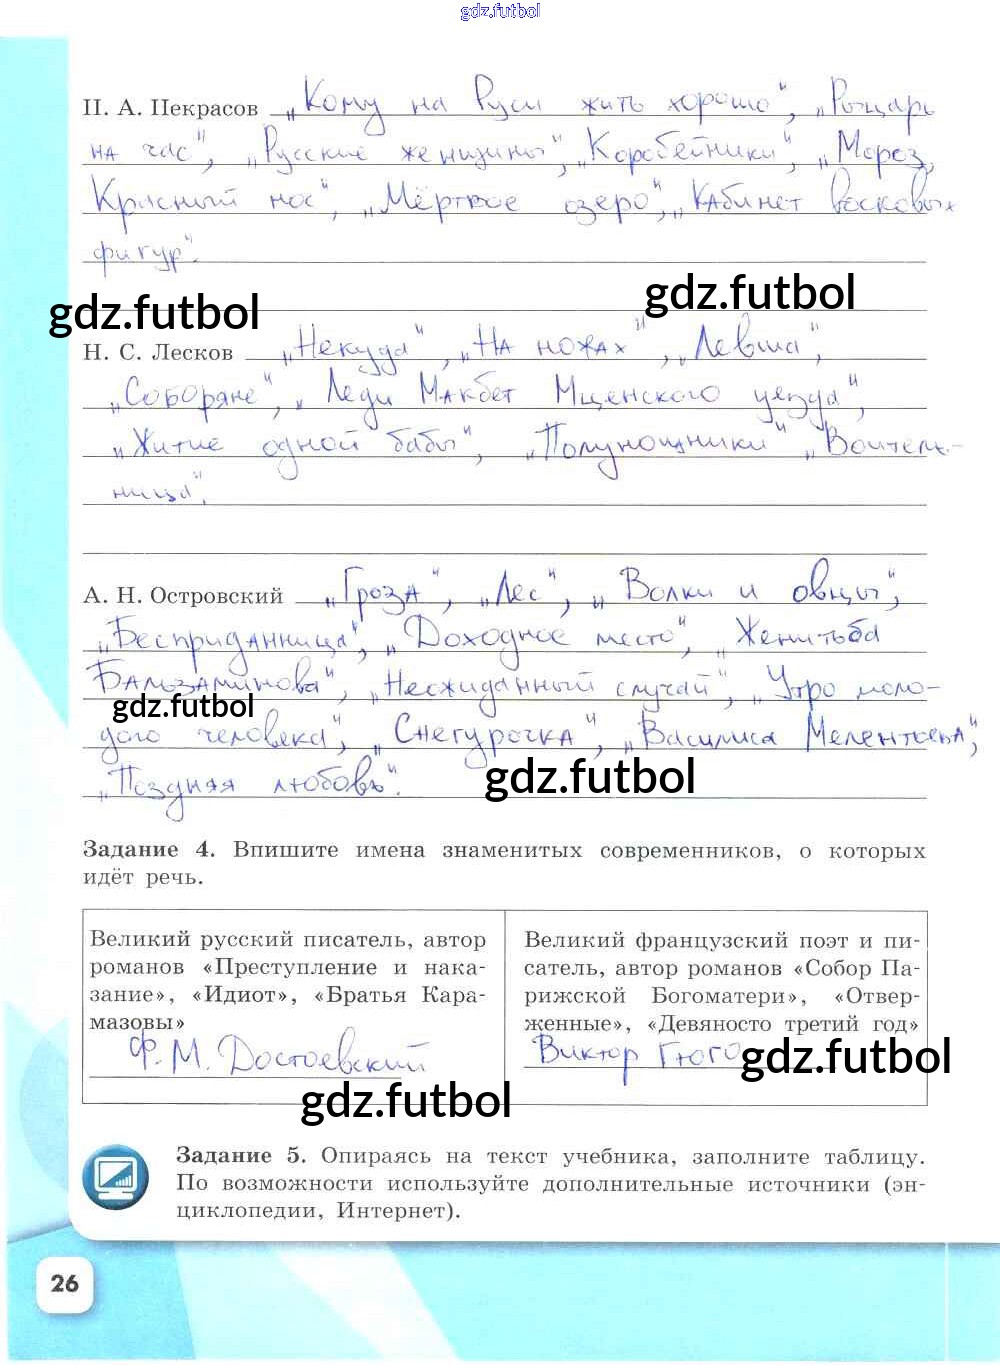 gdz.futbol
Н. А. Некрасов „Кому на Руси жить хорошо“, „Рыцарь
на час“, „Русские женщины“, „Коробейники“, „Мороз,
Красный нос“, „Мёртвое озеро“, „Кабинет восковых
фигур“.
gdz.futbol
gdz.futbol
Н. С. Лесков „Некуда“, „На ножах“, „Левша“,
„Соборяне“, „Леди Макбет Мценского уезда“,
„Житие одной бабы“, „Полунощники“ „Воитель-
ница“.
А. Н. Островский „Гроза“, „Лес“, „Волки и овцы“,
„Бесприданница“, „Доходное место“, „Женитьба
Бальзаминова“, „Неожиданный случай“, „Утро моло-
gdz.futbol
дого человека“, „Снегурочка“, „Василиса Мелентьева“,
„Поздняя любовь“.
gdz.futbol
Задание 4. Впишите имена знаменитых современников, о которых
идёт речь.
Великий русский писатель, автор
романов «Преступление и нака-
зание», «Идиот», «Братья Кара-
мазовы»
Ф. М. Достоевский
Великий французский поэт и пи-
сатель, автор романов «Собор Па-
рижской Богоматери», «Отвер-
женные», «Девяносто третий год»
Виктор Гюго
gdz.futbol
gdz.futbol
Задание 5. Опираясь на текст учебника, заполните таблицу.
По возможности используйте дополнительные источники (эн-
циклопедии, Интернет).
26